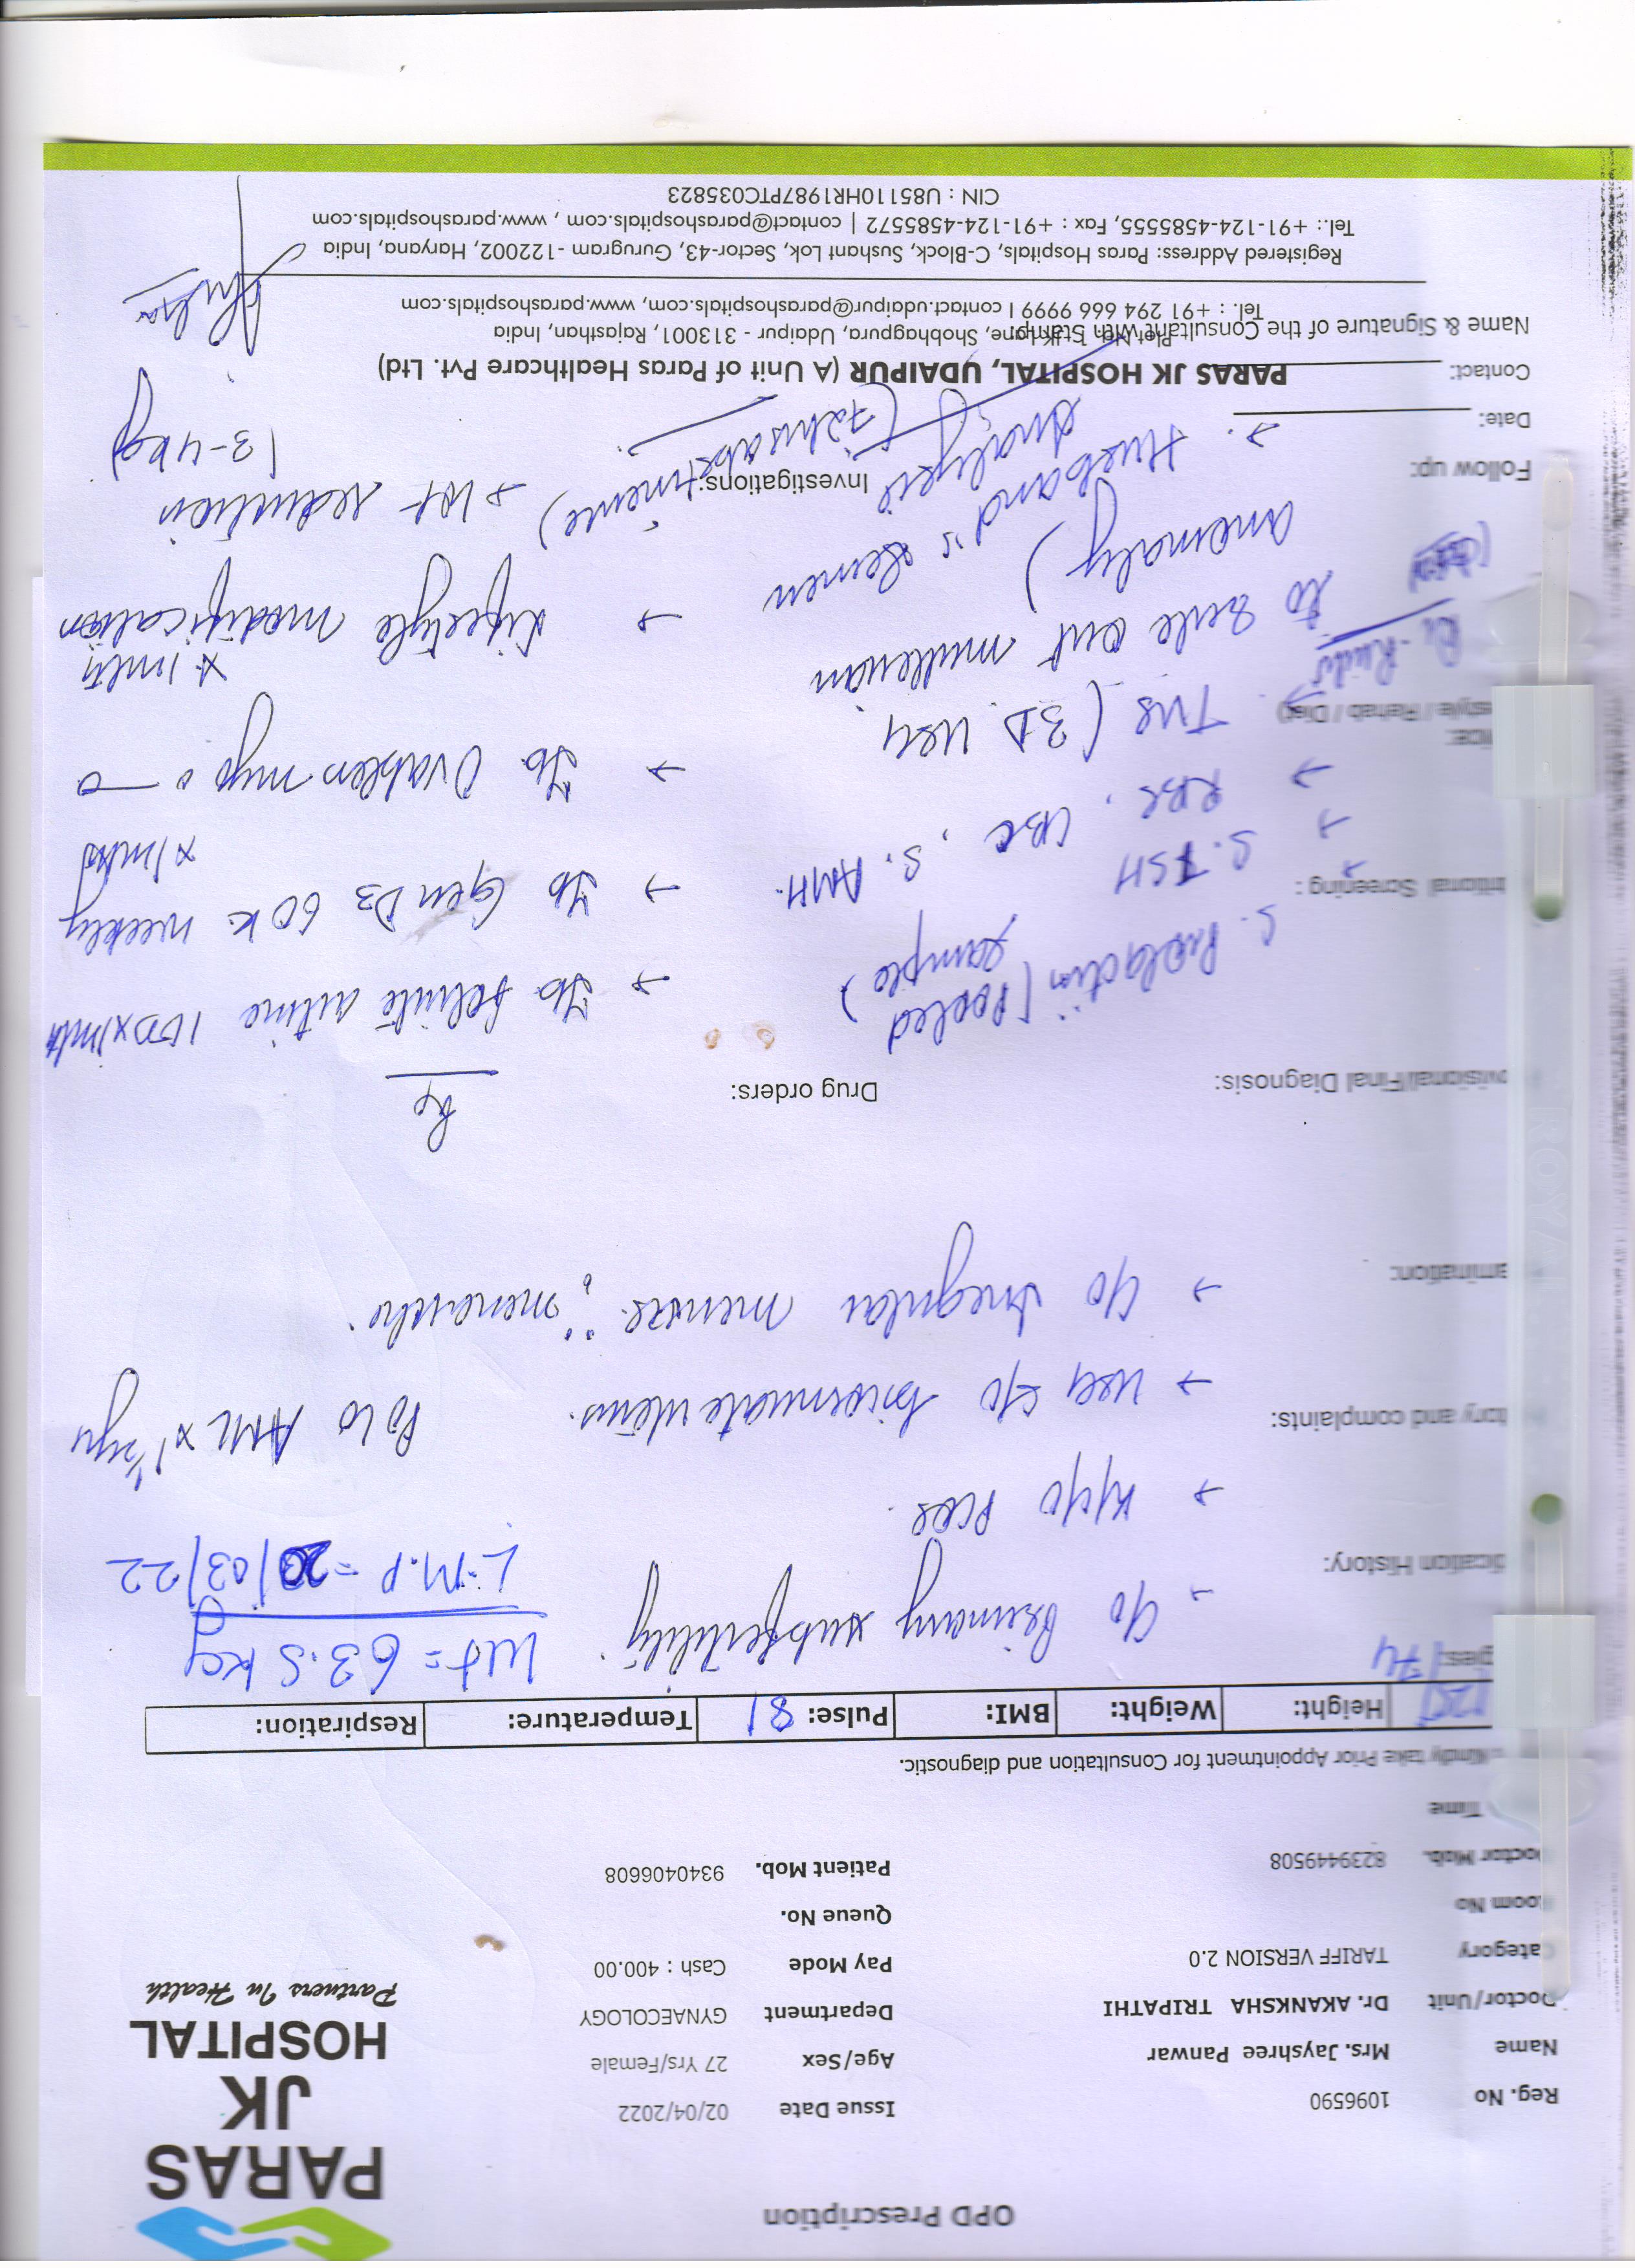 OPD Prescription
PARAS
JK
HOSPITAL
Partners In Health
Reg. No 1096590 Issue Date 02/04/2022
Name Mrs. Jayshree Panwar Age/Sex 27 Yrs/Female
Doctor/Unit Dr. AKANKSHA TRIPATHI Department GYNAECOLOGY
Category TARIFF VERSION 2.0 Pay Mode Cash : 400.00
Room No Queue No.
Doctor Mob. 8239449508 Patient Mob. 9340406608
Time
Kindly take Prior Appointment for Consultation and diagnostic.
Height: Weight: BMI: Pulse: 81 Temperature: Respiration:
gies: 74
→ c/o Primary subfertility. Wt = 63.5 kg
dication History: L.M.P = 20/03/22
→ K/c/o PCOS.
tory and complaints:
→ USG s/o bicornuate uterus. P0L0 AML x 1½ yr
→ c/o irregular menses
amination:
ovisional/Final Diagnosis: Drug orders:
Rx
S. Prolactin (Pooled sample)
→ Tb Folinite active 1OD x 1mth
tritional Screening :
→ S. TSH
→ Tb Gen D3 60K weekly x 1mth
→ RBS, CBC, S. AMH.
→ Tb Ovabless myo x 1mth
vice:
estyle / Rehab / Diet)
→ TVS (3D USG
to rule out mullerian
anomaly)
→ Lifestyle modification
Follow up: Investigations:
→ Husband's semen
analysis (7 days abstinence)
→ Wt reduction
(3-4kg)
Date:
Contact:
Name & Signature of the Consultant with Stamp
PARAS JK HOSPITAL, UDAIPUR (A Unit of Paras Healthcare Pvt. Ltd)
Shobhagpura, Udaipur - 313001, Rajasthan, India
Tel. : +91 294 666 9999 I contact.udaipur@parashospitals.com, www.parashospitals.com
Registered Address: Paras Hospitals, C-Block, Sushant Lok, Sector-43, Gurugram -122002, Haryana, India
Tel.: +91-124-4585555, Fax : +91-124-4585572 | contact@parashospitals.com , www.parashospitals.com
CIN : U85110HR1987PTC035823